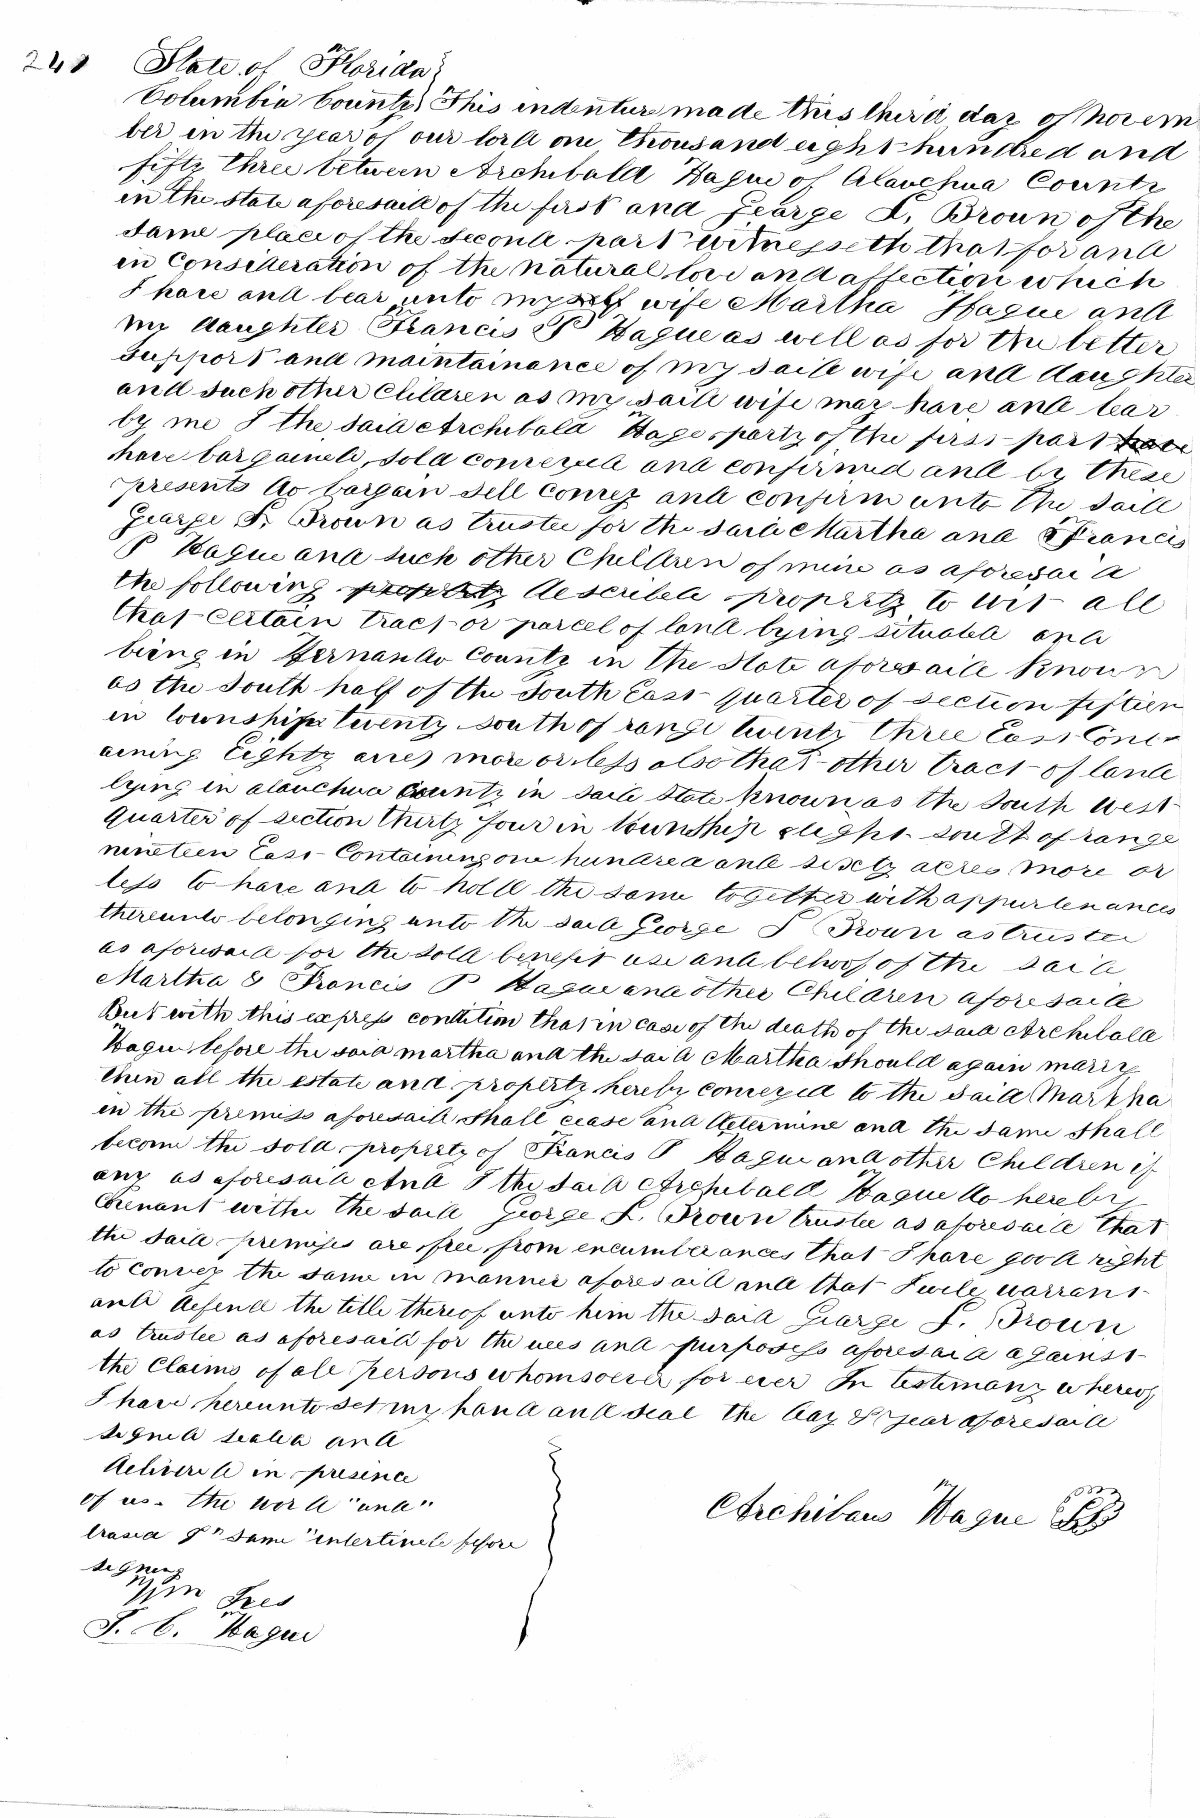 248 State of Florida
Columbia County This indenture made this third day of Novem
ber in the year of our lord one thousand eight hundred and
fifty three between Archibald Hague of Alauchua County
in the state aforesaid of the first and George L. Brown of the
same place of the second part witnesseth that for and
in consideration of the natural love and affection which
I have and bear unto myself wife Martha Hague and
my daughter Francis P Hague as well as for the better
support and maintainance of my said wife and daughter
and such other Children as my said wife may have and bear
by me I the said Archibald Hage party of the first part have
have bargained, sold conveyed and confirmed and by these
presents do bargain sell convey and confirm unto the said
George L. Brown as trustee for the said Martha and Francis
P Hague and such other Children of mine as aforesaid
the following property described property to wit all
that certain tract or parcel of land lying situated and
being in Hernando County in the State aforesaid known
as the South half of the South East quarter of section fifteen
in township twenty south of range twenty three East Cont
aining Eighty acres more or less also that other tract of land
lying in alauchua County in said State known as the South West
quarter of section thirty four in township eight south of range
nineteen East Containing one hundred and sixty acres more or
less to have and to hold the same together with appurtenances
thereunto belonging unto the said George L Brown as trustee
as aforesaid for the sold benefit use and behoof of the said
Martha & Francis P Hague and other Children aforesaid
But with this express condition that in case of the death of the said Archibald
Hague before the said martha and the said Martha should again marry
then all the estate and property hereby conveyed to the said Martha
in the premiss aforesaid shall cease and determine and the same shall
become the sold property of Francis P Hague and other Children if
any as aforesaid And I the said Archibald Hague do hereby
Covenant withe the said George L. Brown trustee as aforesaid that
the said premises are free from encumberances that I have good right
to convey the same in manner aforesaid and that I will warrant
and defend the title thereof unto him the said George L. Brown
as trustee as aforesaid for the uses and purposess aforesaid against
the Claims of all persons whomsoever for ever In testimony whereof
I have hereunto set my hand and seal the day & year aforesaid
signed sealed and
delivered in presence
of us. the word "and"
erased & "same" interlined before
signing
Archibald Hague
Wm
Hague